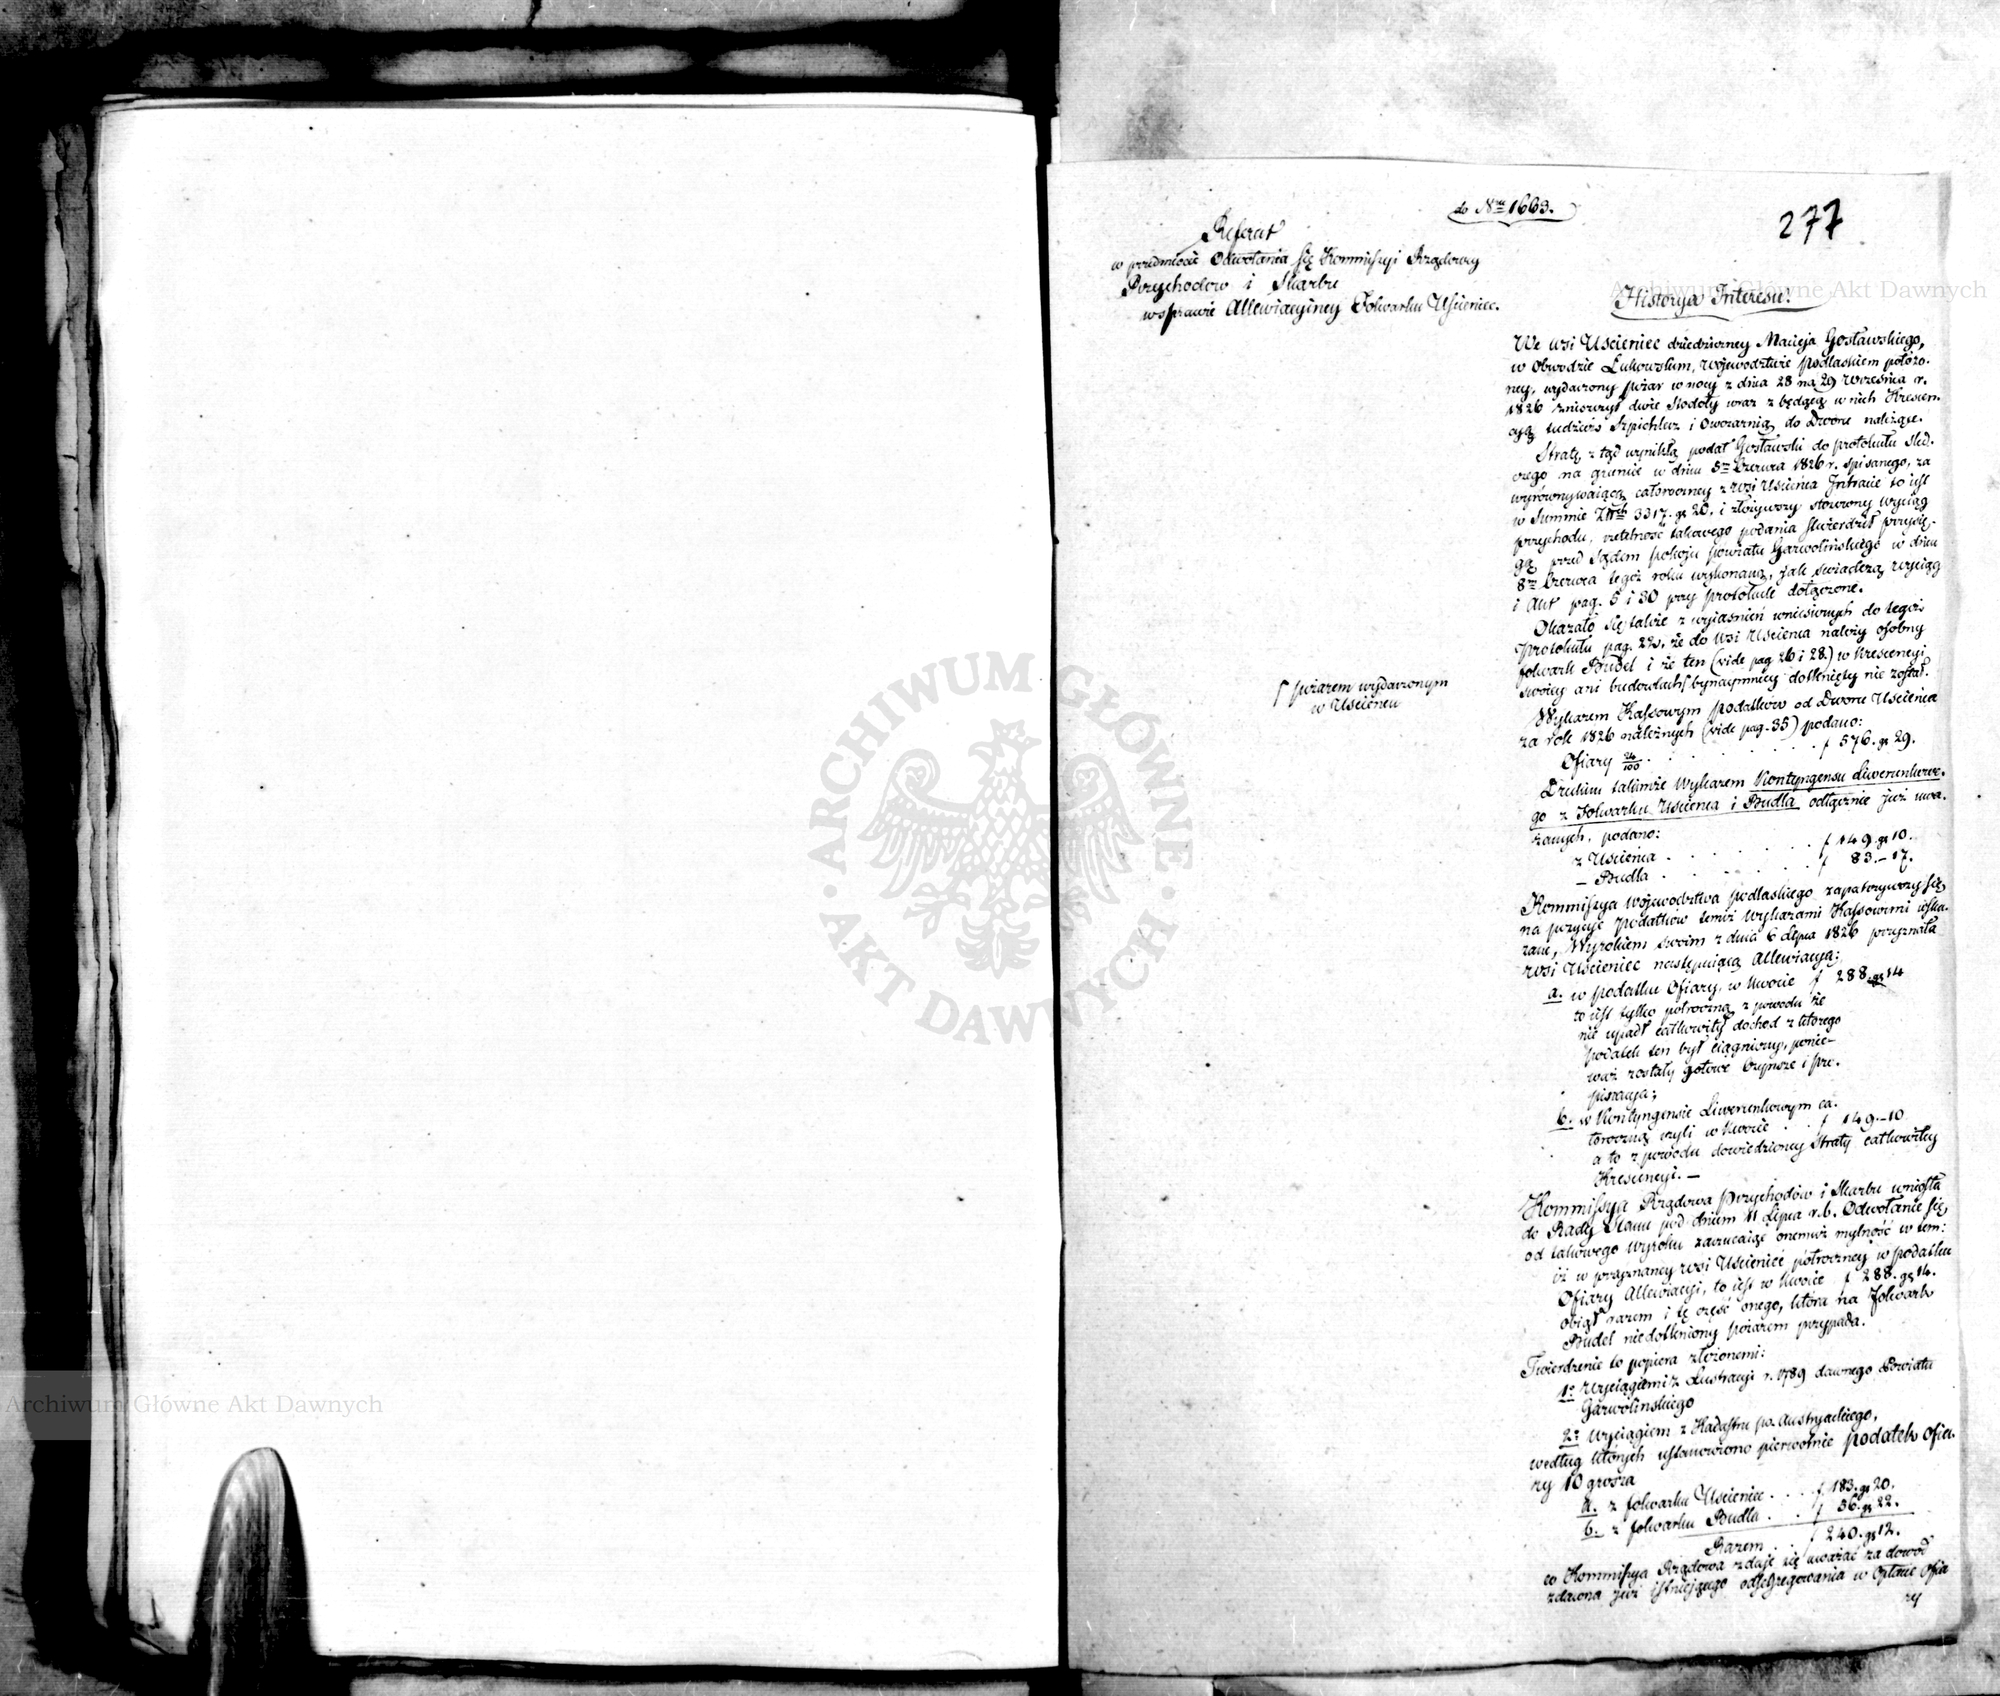 do Nru 1663.
277
Referat
w przedmiocie Odwołania się Kommissyi Rządowey
Przychodow i Skarbu
w sprawie Allewiacyiney Folwarku Uścieniec.
Historya Interesu.
We wsi Uścieniec dziedziczney Macieja Gosławskiego,
w Obwodzie Łukowskim, Województwie Podlaskiem położo-
ney, wydarzony pożar w nocy z dnia 28 na 29 Września r.
1826 zniszczył dwie Stodoły wraz z będącą w nich Krescen-
cyą tudzież Szpichlerz i Owczarnią do Dworu należące.
Stratę z tąd wynikłą podał Gosławski do protokułu śled-
czego na gruncie w dniu 5 Czerwca 1826 r. spisanego, za
wyrównywaiącą całoroczney z wsi Uścieńca Intracie to iest
w Summie Złt 3317. gr 20. i złożywszy stosowny wyciąg
przychodu, rzetelność takowego podania stwierdził przysię-
gą przed Sądem pokoju powiatu Garwolińskiego w dniu
8 Czerwca tegoż roku wykonaną, jak świadczą wyciąg
i Akt pag. 5 i 30 przy protokule dołączone.
Okazało się także z wyiaśnień wniesionych do tegoż
Protokułu pag. 22, że do wsi Uścieńca należy osobny
folwark Budel i że ten (vide pag 26 i 28.) w Krescencyi
swoiey ani budowlach bynaymniey dotknięty nie został.
pożarem wydarzonym
w Uścieńcu
Wykazem Kassowym podatków od Dworu Uścieńca
za rok 1826 należnych (vide pag. 35) podano:
Ofiary 24/100 . . . . . f 576. gr 29.
Drukim takimże Wykazem Kontyngensu Liwerunkowe-
go z Folwarku Uścieńca i Budla odłącznie już uwa-
żanych, podano:
z Uścieńca . . . . . f 149. gr 10.
– Budla . . . . . f 83.–17.
Kommissya Województwa Podlaskiego zapatrzywszy się
na pozycye podatków temi Wykazami Kassowemi wska-
zane, Wyrokiem swoim z dnia 6 Lipca 1826 przyznała
wsi Uścieniec następuiącą Allewiacyą:
a. w podatku Ofiary, w kwocie f 288. gr 14
to iest tylko półroczną z powodu że
nie upadł całkowity dochod z którego
podatek ten był ciągniony, ponie-
waż zostały gotowe Czynsze i pro-
pinacya;
b. w Kontyngensie Liwerunkowym ca-
łoroczną czyli w kwocie . . f 149.–10
a to z powodu dowiedzioney Straty całkowitey
Krescencyi. –
Kommissya Rządowa Przychodów i Skarbu wniosła
do Rady Stanu pod dniem 11 Lipca r. b. Odwołanie się
od takowego wyroku zarzucaiąc onemuż mylność w tem:
iż w przyznaney wsi Uścieniec półroczney w podatku
Ofiary Allewiacyi, to iest w kwocie f 288. gr 14.
obiął razem i tę część onego, która na Folwark
Budel niedotkniony pożarem przypada.
Twierdzenie to popiera złożonemi:
1o Wyciągiem z Lustracyi r. 1789 dawnego Powiatu
Garwolinskiego
2o Wyciągiem z Kadastru po Austryackiego,
według których ustanowiono pierwotnie podatek Ofia-
ry 10 grosza
a. z folwarku Uścieniec . . . . f 183. gr 20.
b. z folwarku Budla . . . f 56. gr 22.
Razem . . f 240. gr 12.
co Kommissya Rządowa zdaje się uważać za dowod
zdawna już istniejącego odsegregowania w Opłacie Ofia
ry
Archiwum Główne Akt Dawnych
ARCHIWUM GŁÓWNE
AKT DAWNYCH
Archiwum Główne Akt Dawnych